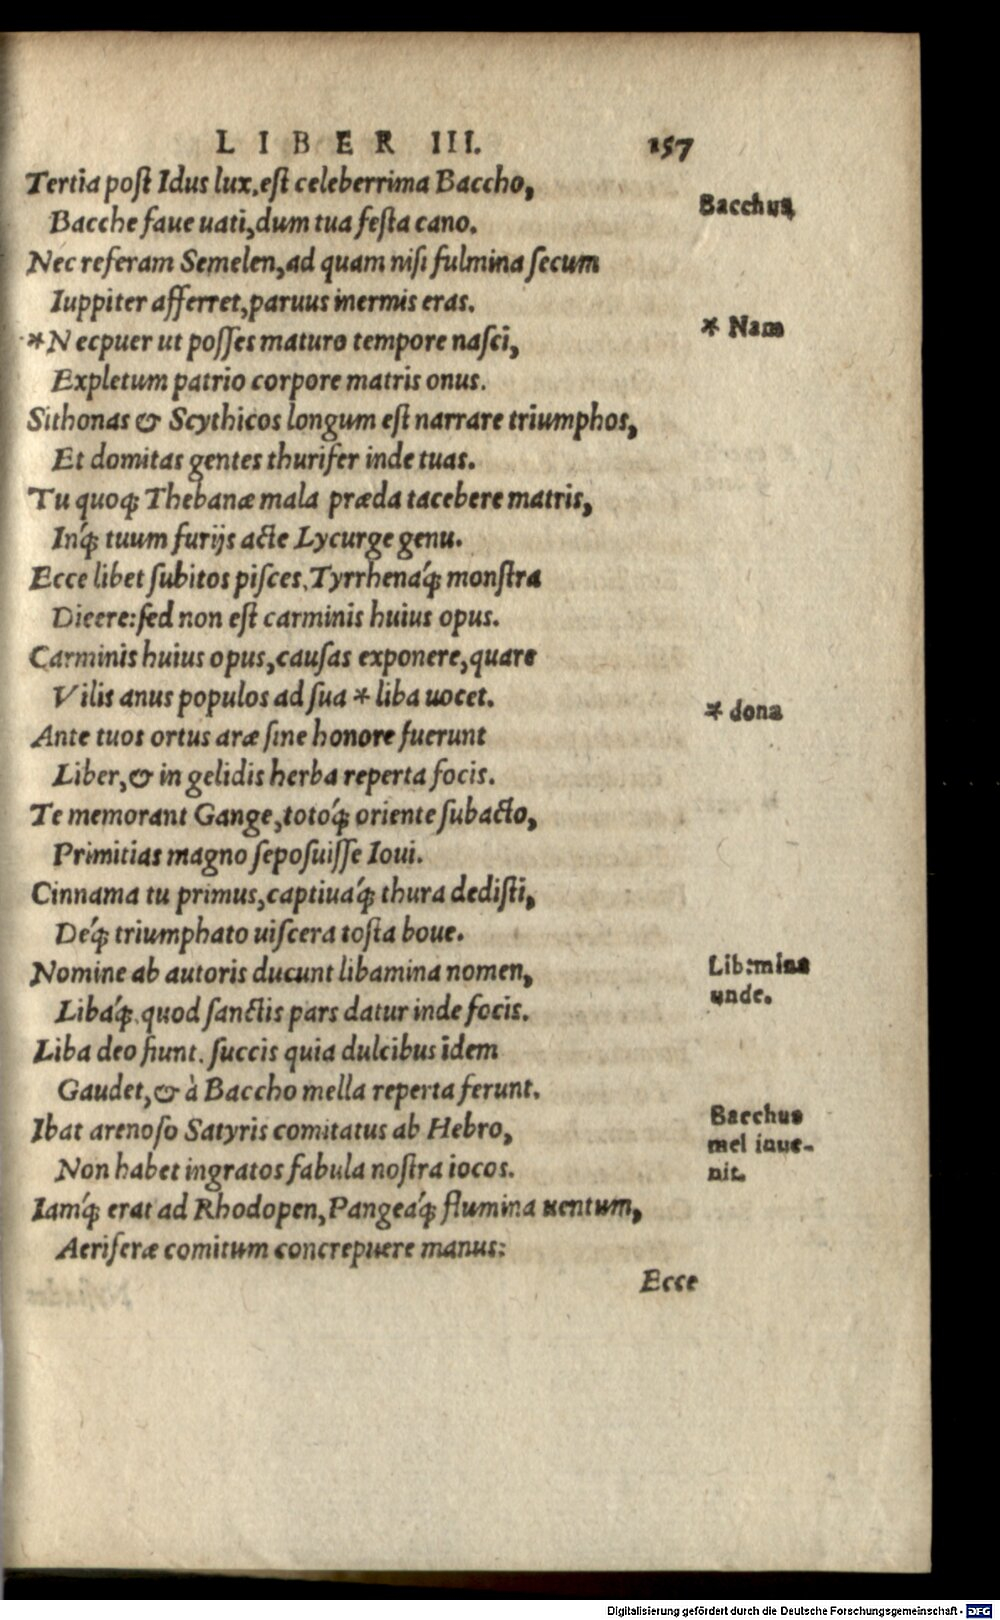 LIBER III. 157
Tertia poſt Idus lux, eſt celeberrima Baccho,
Bacchus
Bacche faue uati, dum tua feſta cano.
Nec referam Semelen, ad quam niſi fulmina ſecum
Iuppiter afferret, paruus inermis eras.
* Nam
*Nec puer ut poſſes maturo tempore naſci,
Expletum patrio corpore matris onus.
Sithonas & Scythicos longum eſt narrare triumphos,
Et domitas gentes thurifer inde tuas.
Tu quoq; Thebanæ mala præda tacebere matris,
Inq́; tuum furijs acte Lycurge genu.
Ecce libet ſubitos piſces, Tyrrhenaq́; monſtra
Dicere: ſed non eſt carminis huius opus.
Carminis huius opus, cauſas exponere, quare
Vilis anus populos ad ſua * liba uocet.
* dona
Ante tuos ortus aræ ſine honore fuerunt
Liber, & in gelidis herba reperta focis.
Te memorant Gange, totoq́; oriente ſubacto,
Primitias magno ſepoſuiſſe Ioui.
Cinnama tu primus, captiuaq́; thura dediſti,
Deq́; triumphato uiſcera toſta boue.
Nomine ab autoris ducunt libamina nomen,
Libamina
unde.
Libaq́;, quod ſanctis pars datur inde focis.
Liba deo fiunt, ſuccis quia dulcibus idem
Gaudet, & à Baccho mella reperta ferunt.
Ibat arenoſo Satyris comitatus ab Hebro,
Bacchus
mel inue-
nit.
Non habet ingratos fabula noſtra iocos.
Iamq́; erat ad Rhodopen, Pangeaq́; flumina uentum,
Aeriferæ comitum concrepuere manus:
Ecce
Digitalisierung gefördert durch die Deutsche Forschungsgemeinschaft - DFG